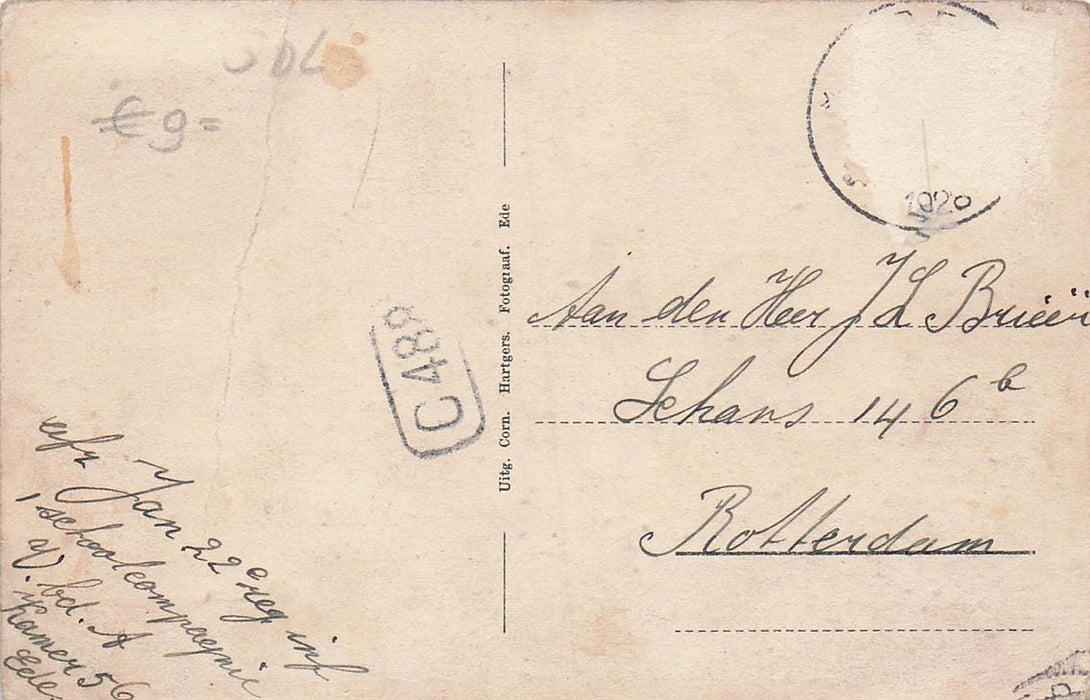 € 9=
1920
C 488
Uitg. Corn. Hartgers. Fotograaf. Ede
Aan den Heer J L Brieër
Schans 146 b
Rotterdam
afz Jan 22e reg inf
1 schoolcompagnie
V. bd. A
Kamer 56
Ede